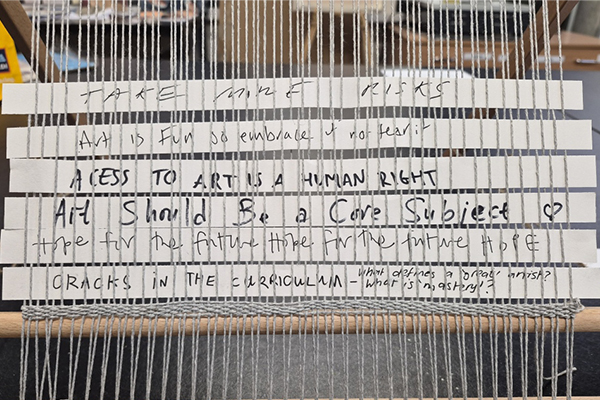 TAKE MORE RISKS
Art is Fun so embrace it not fear it
ACESS TO ART IS A HUMAN RIGHT
Art Should Be a Core Subject ♡
Hope for the future Hope for the future HOPE
CRACKS IN THE CURRICULUM - What defines a 'great' artist?
What is mastery!?